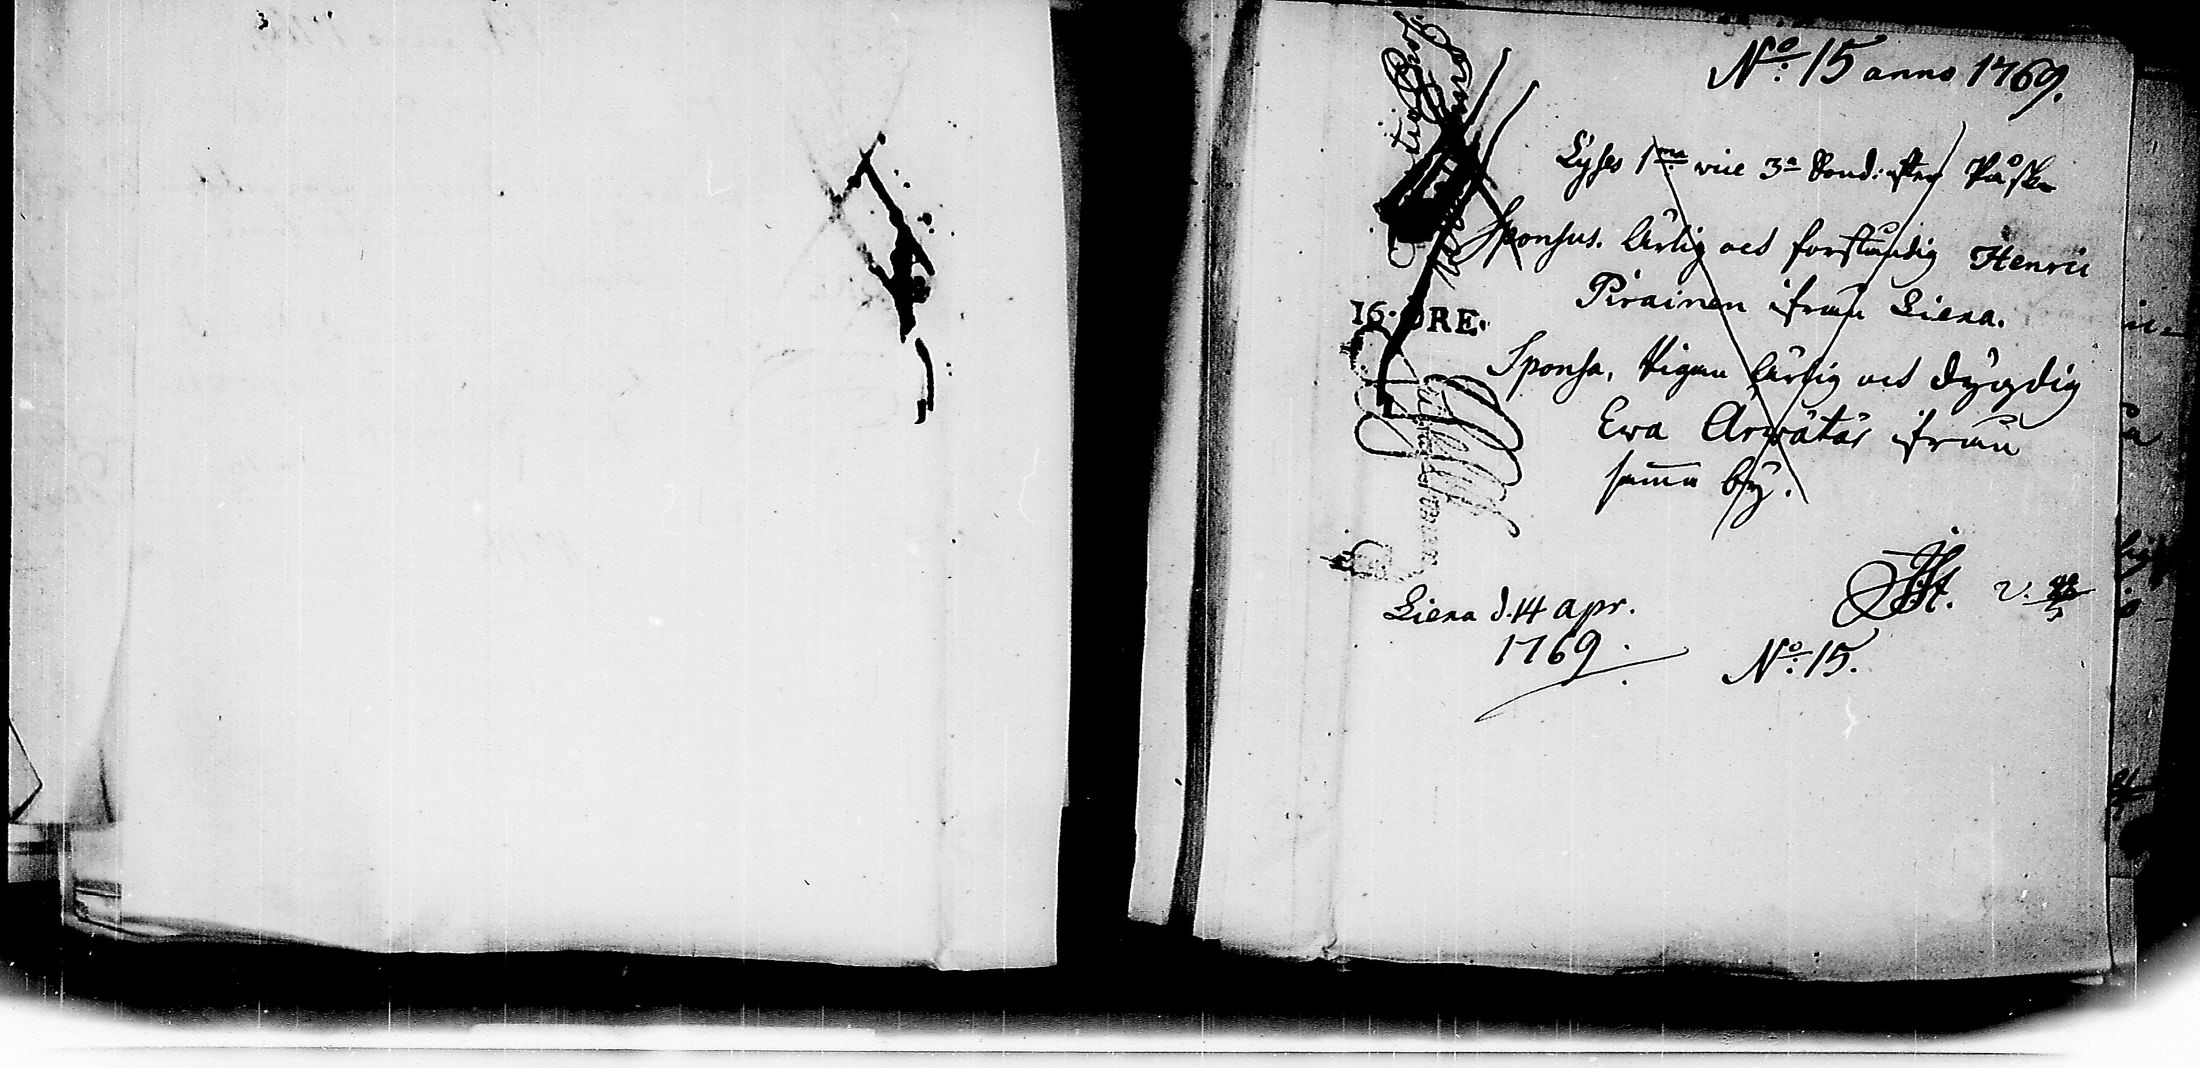 No: 15 anno 1769.
Lyses 1ma vice 3a Sond: efter Påska
Sponsus. Ärlig och förståndig Henric
Pirainen ifrån Liexa.
Sponsa, Pigan ärlig och dygdig
Ewa Arwätär ifrån
samma by.
16. ÖRE.
Liexa d. 14 apr.
1769.
No: 15.